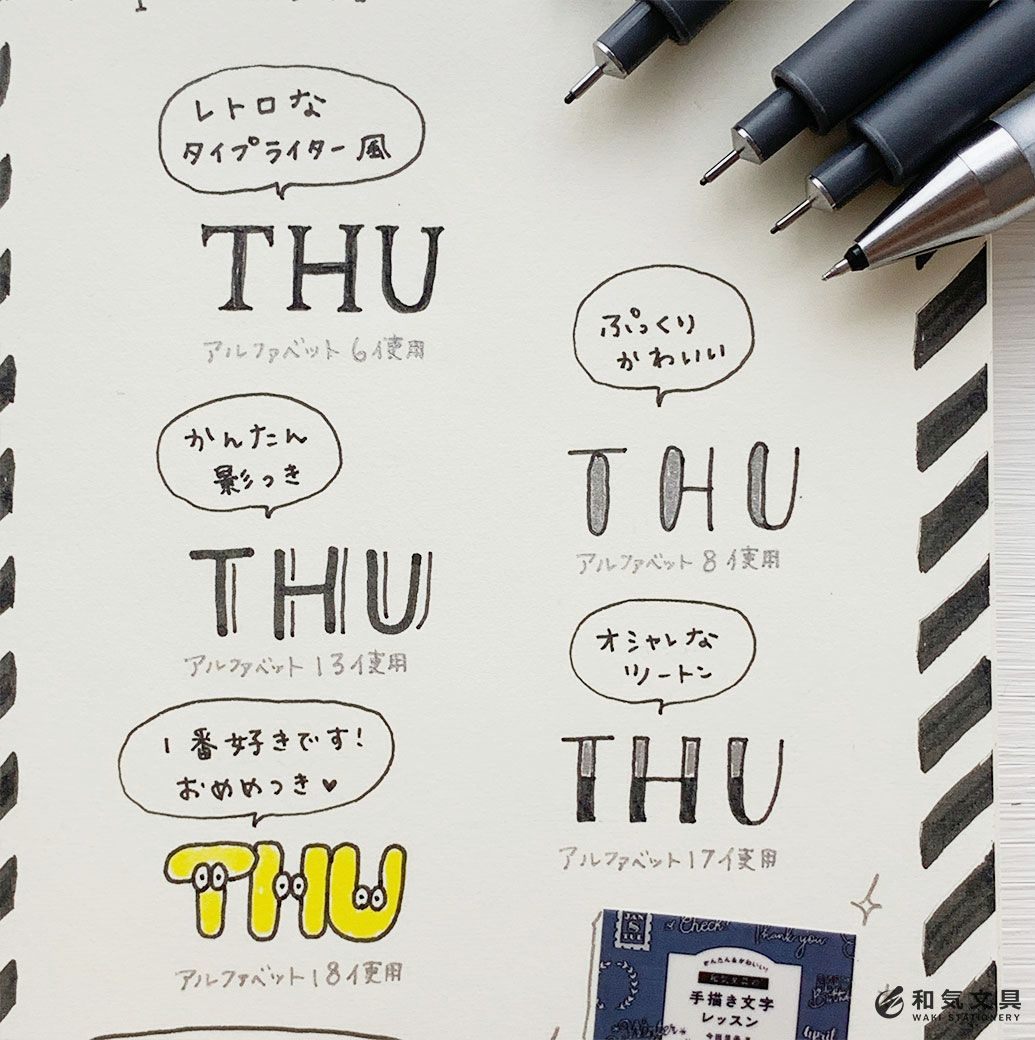 レトロな
タイプライター風
THU
アルファベット6使用
かんたん
影つき
THU
アルファベット13使用
1番好きです!
おめめつき♥
THU
アルファベット18使用
ぷっくり
かわいい
THU
アルファベット8使用
オシャレな
ツートン
THU
アルファベット17使用
JAN
Check!
Thank you
かんたん&かわいい!
手描き文字
レッスン
April
和気文具
WAKI STATIONERY